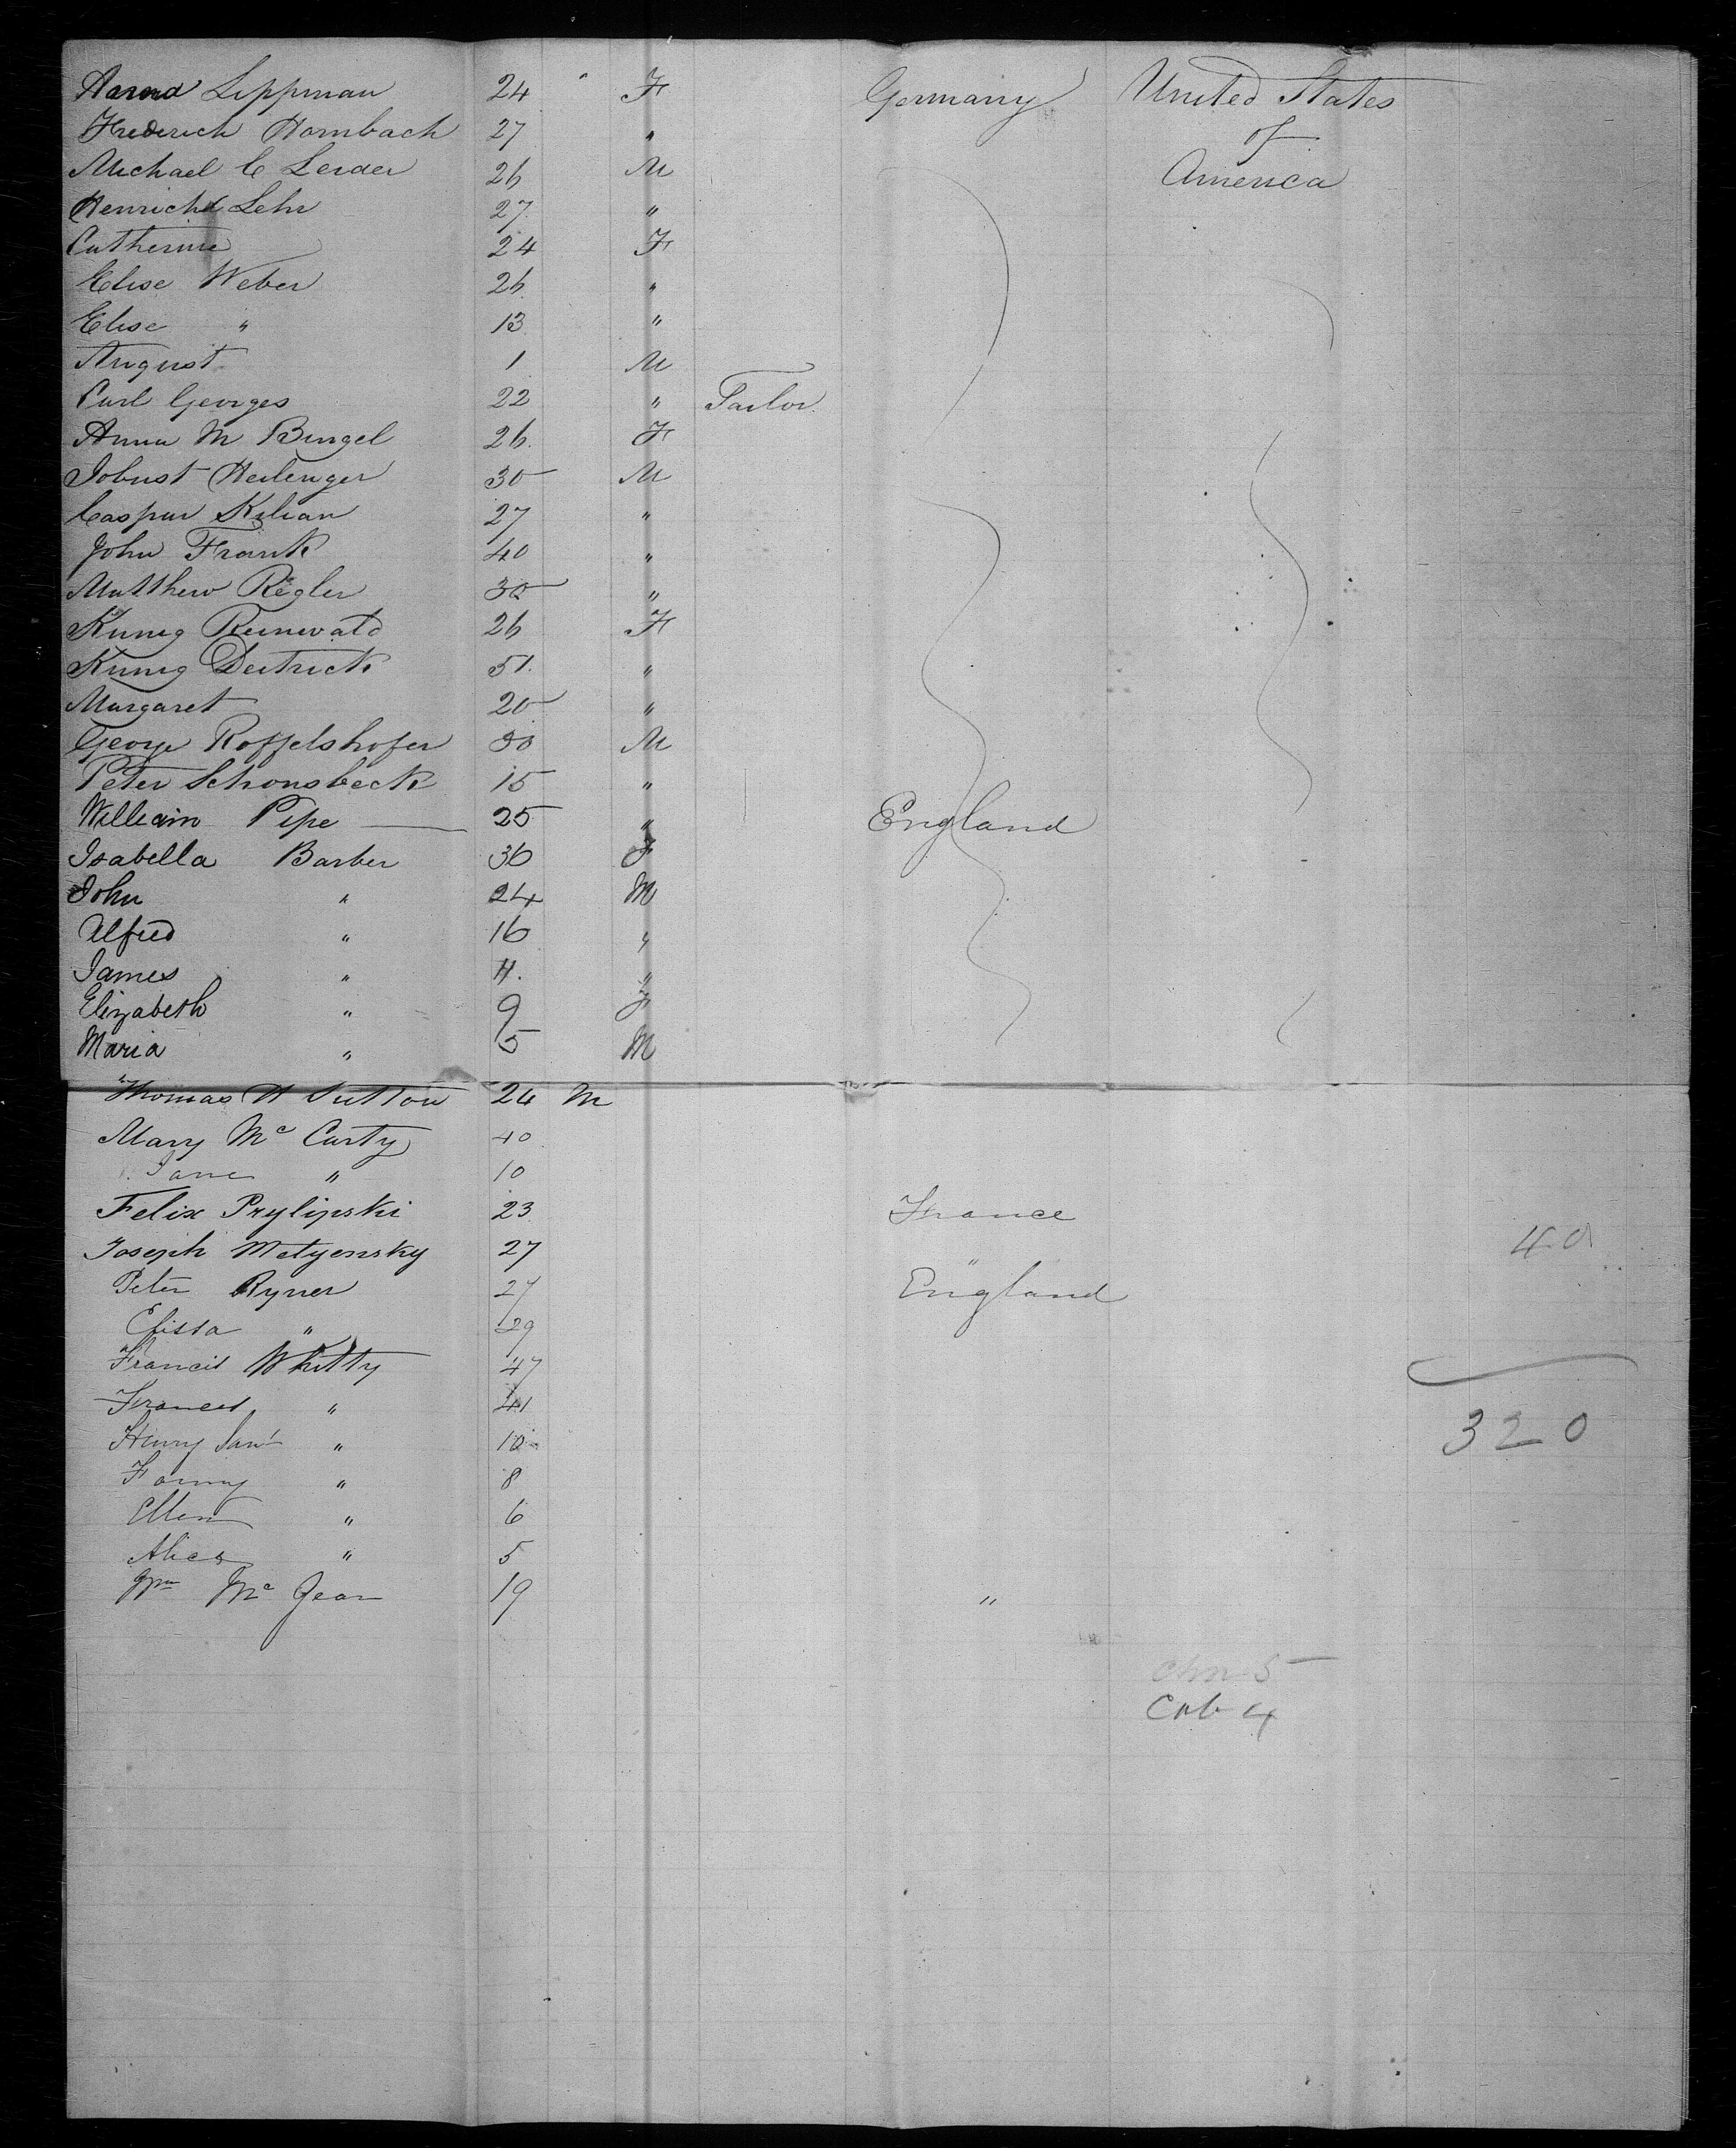 Anna Lippman 24 " F Germany United States
Frederich Hornbach 27 " of
Michael C Lender 26 M America
Henrich Lehr 27 "
Catherine 24 F
Elise Weber 26 "
Elise " 13 "
August 1 M
Carl Georges 22 " Tailor
Anna M Bingel 26 F
Jobust Heilenger 30 M
Caspar Kilian 27 "
John Frank 40 "
Matthew Regler 30 "
Kunig Reinwald 26 F
Kunig Deitrick 51 "
Margaret 20 "
George Roffelshofer 30 M
Peter Schonsbeck 15 "
William Pipe 25 " England
Isabella Barber 36 F
John " 24 M
Alfred " 16 "
James " 11. "
Elizabeth " 9 F
Maria " 5 M
Thomas H Sutton 24 M
Mary Mc Carty 40
Jane " 10
Felix Prylipski 23 France
Joseph Metyensky 27 " 40
Peter Ryner 27 England
Elissa " 29
Francis Whitty 47
Frances " 41
Henry Saml " 10 320
Fanny " 8
Ellen " 6
Alice " 5
Wm Mc Gean 19 "
chn 5
Cab 4